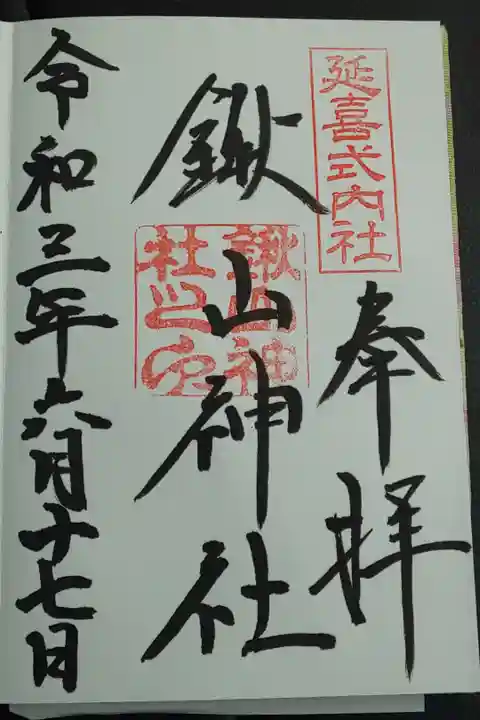 延喜式内社
奉拝
鍬山神社
鍬山神社之印
令和三年六月十七日